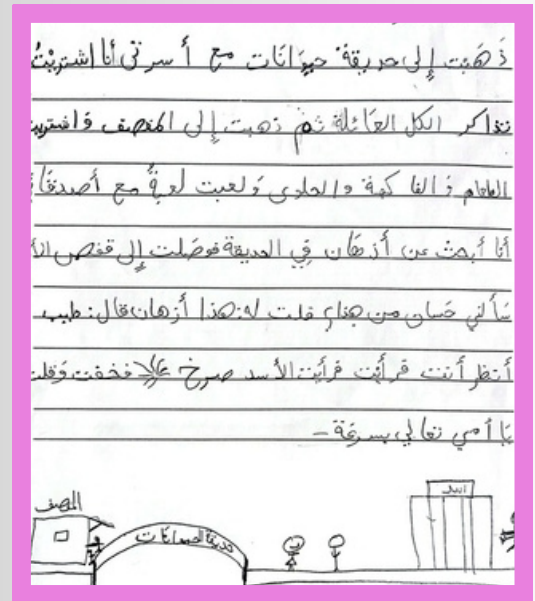 ذَهَبت إِلى حديقة حيوَانَات مع أسرتي أنا اشتريْتُ
تذاكر الكل العَائلة ثم ذهبت إِلى المقصف وَاشتريت
الطعام وَالفاكهة والحلوى وَلعبت لعبةً مع أصدقَا
أنا أبحث عن أذهَان فِي الحديقة فوصَلت إِلى قفص الأ
سَألني حَسان من هذا؟ قلت له: هذا أزهان قال: طيب
أنظر أنت قرأيْت فرأيت الأسد صرخ عَلا فخفت وَقلت
يَا أمي تعالي بسرعَة -
المصف
حديقة الحيوانَات
اسد